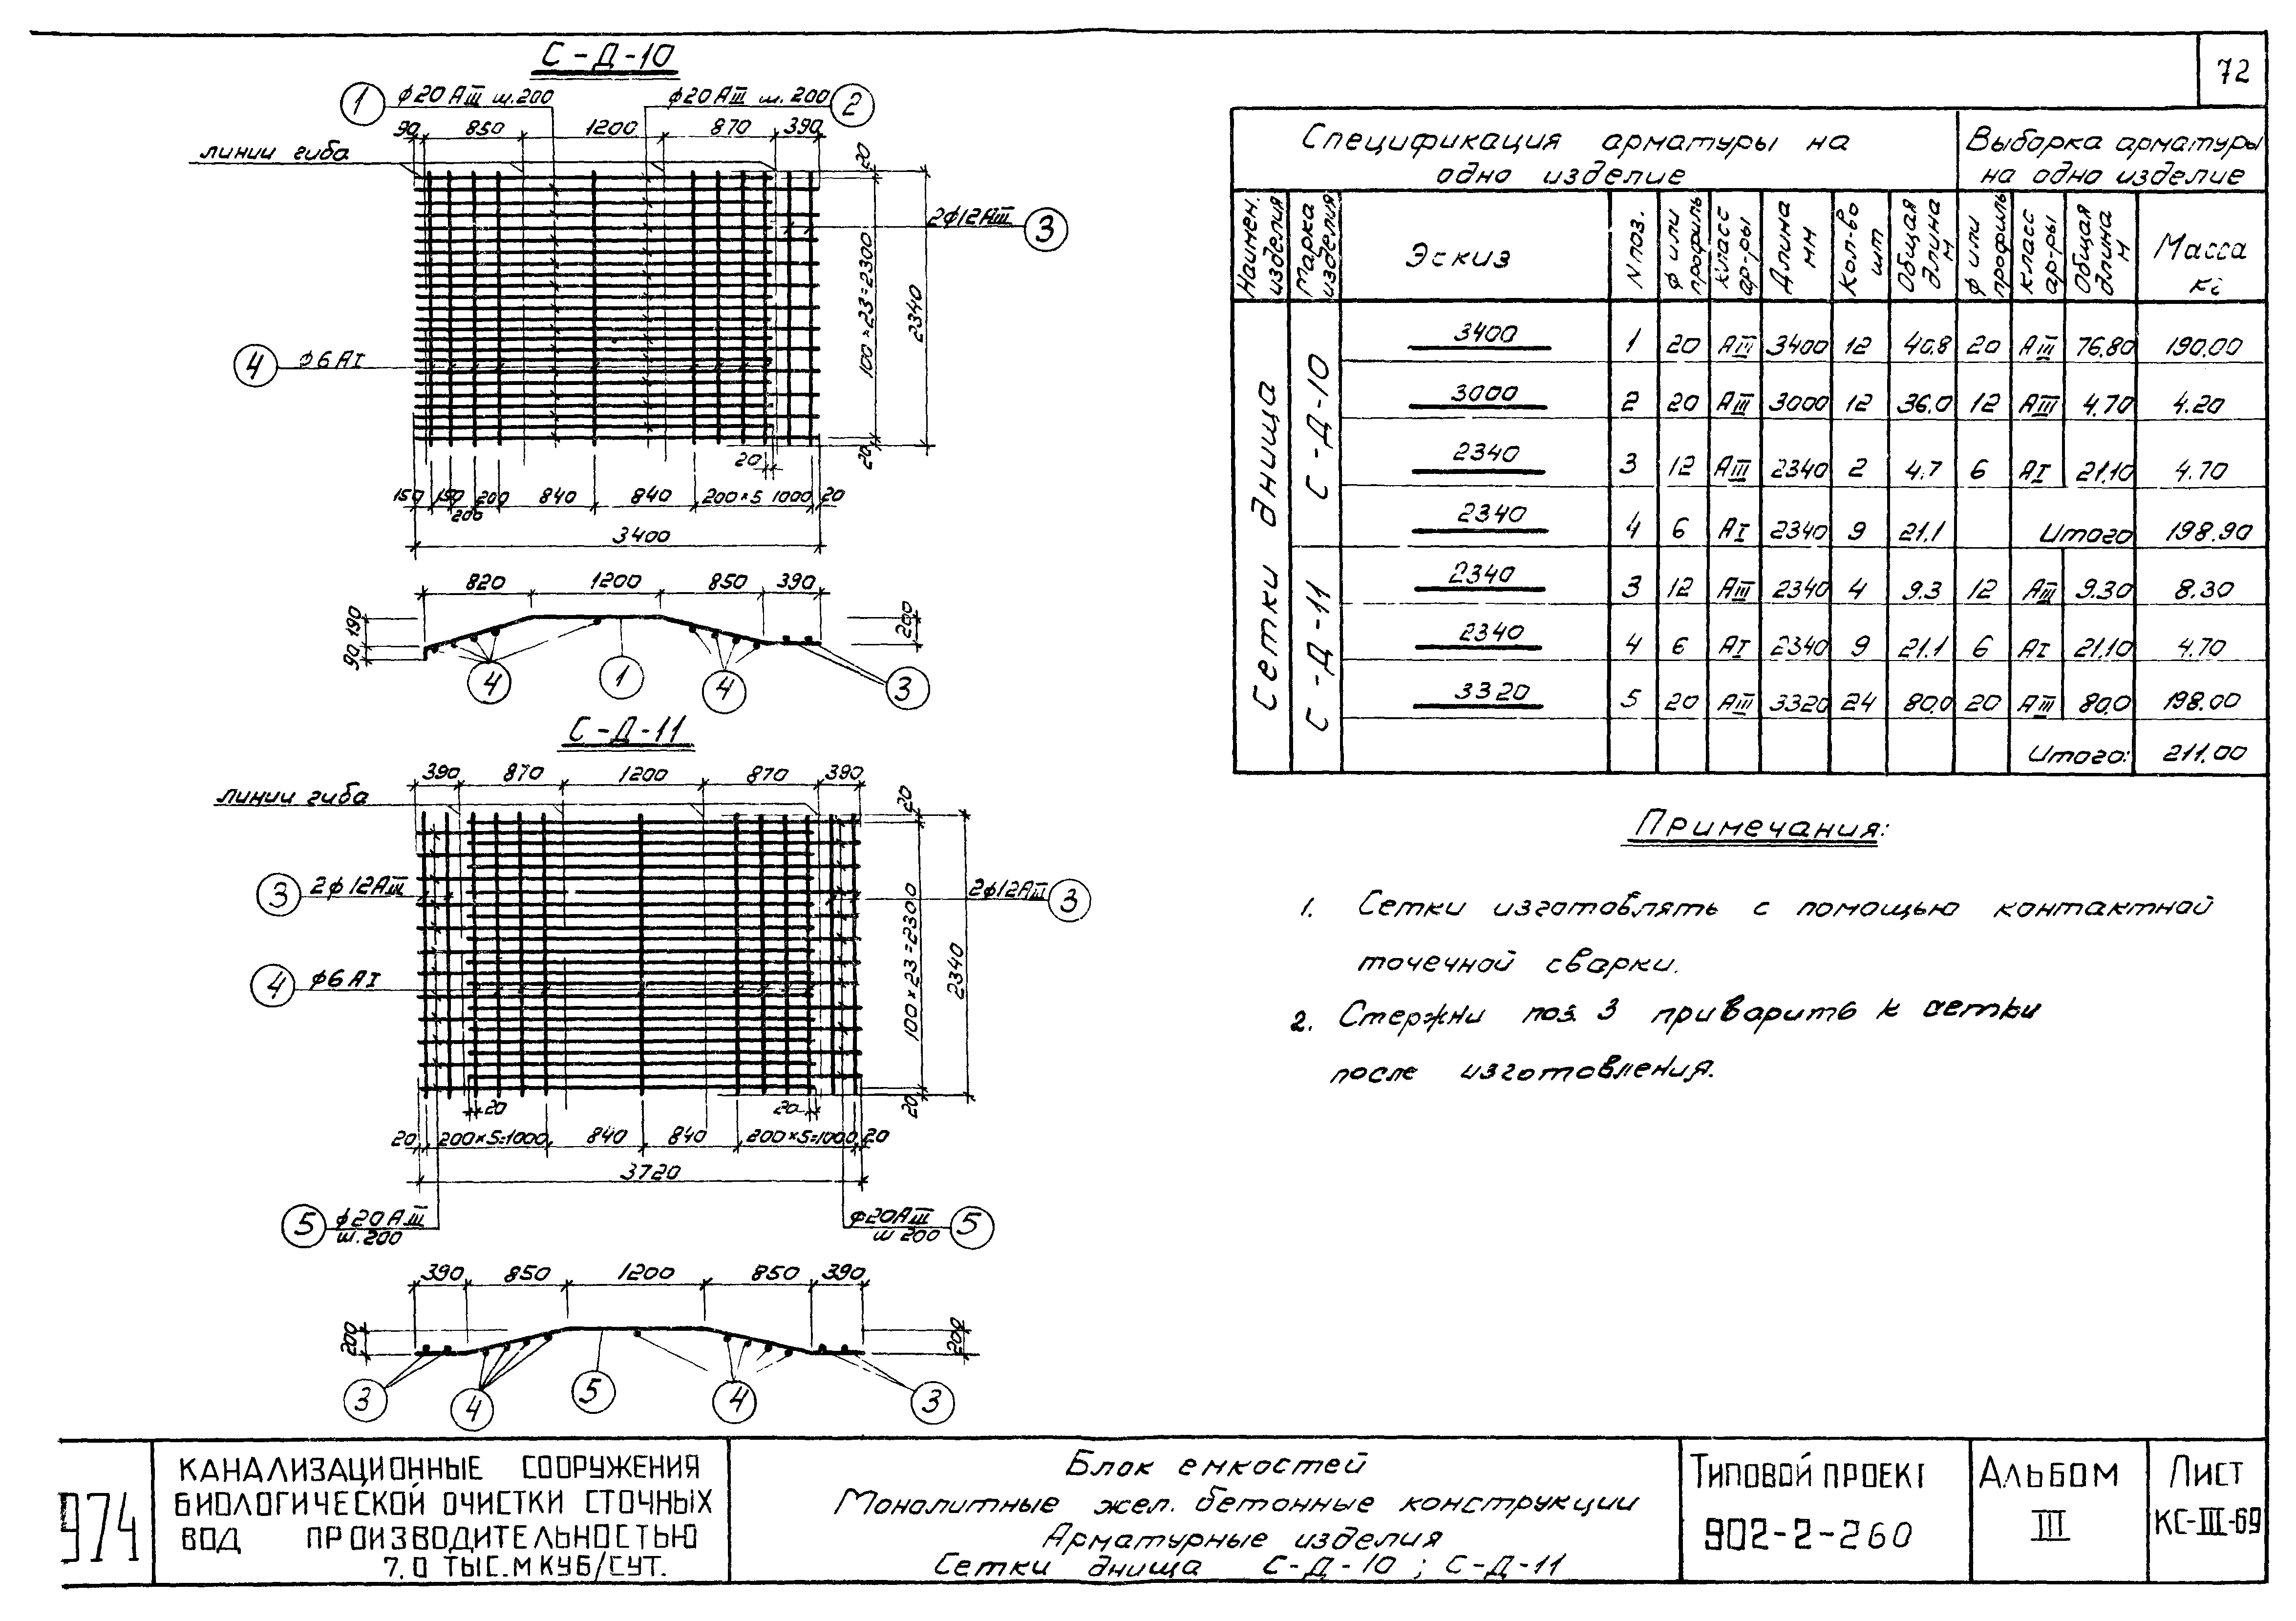 72
С-Д-10
1 ф20АIII ш.200
ф20АIII ш.200 2
90 850 1200 870 390
линии гиба
20
2ф12АIII 3
100×23=2300
2340
4 ф6АI
20
20
150 150 200 840 840 200×5 1000 20
200
3400
820 1200 850 390
190
90
200
4 1 4 3
С-Д-11
390 870 1200 870 390
линии гиба
20
3 2ф12АIII
2ф12АIII 3
4 ф6АI
100×23=2300
2340
20 20
20
20 200×5=1000 840 840 200×5=1000 20
3720
5 ф20АIII
ш.200
ф20АIII 5
ш 200
390 850 1200 850 390
200
200
3 4 5 4 3
Спецификация арматуры на
одно изделие
Выборка арматуры
на одно изделие
Наимен. изделия
Марка изделия
Эскиз
N поз.
ф или профиль
класс ар-ры
Длина мм
Кол-во шт
Общая длина м
ф или профиль
класс ар-ры
Общая длина м
Масса кг
Сетки днища
С-Д-10
3400 1 20 АIII 3400 12 40.8 20 АIII 76.80 190.00
3000 2 20 АIII 3000 12 36.0 12 АIII 4.70 4.20
2340 3 12 АIII 2340 2 4.7 6 АI 21.10 4.70
2340 4 6 АI 2340 9 21.1 Итого 198.90
С-Д-11
2340 3 12 АIII 2340 4 9.3 12 АIII 9.30 8.30
2340 4 6 АI 2340 9 21.1 6 АI 21.10 4.70
3320 5 20 АIII 3320 24 80.0 20 АIII 80.0 198.00
Итого: 211.00
Примечания:
1. Сетки изготовлять с помощью контактной
точечной сварки.
2. Стержни поз. 3 приварить к сетки
после изготовления.
974
КАНАЛИЗАЦИОННЫЕ СООРУЖЕНИЯ
БИОЛОГИЧЕСКОЙ ОЧИСТКИ СТОЧНЫХ
ВОД ПРОИЗВОДИТЕЛЬНОСТЬЮ
7,0 ТЫС.М КУБ/СУТ.
Блок емкостей
Монолитные жел. бетонные конструкции
Арматурные изделия
Сетки днища С-Д-10 ; С-Д-11
ТИПОВОЙ ПРОЕКТ
902-2-260
АЛЬБОМ
III
ЛИСТ
КС-III-69